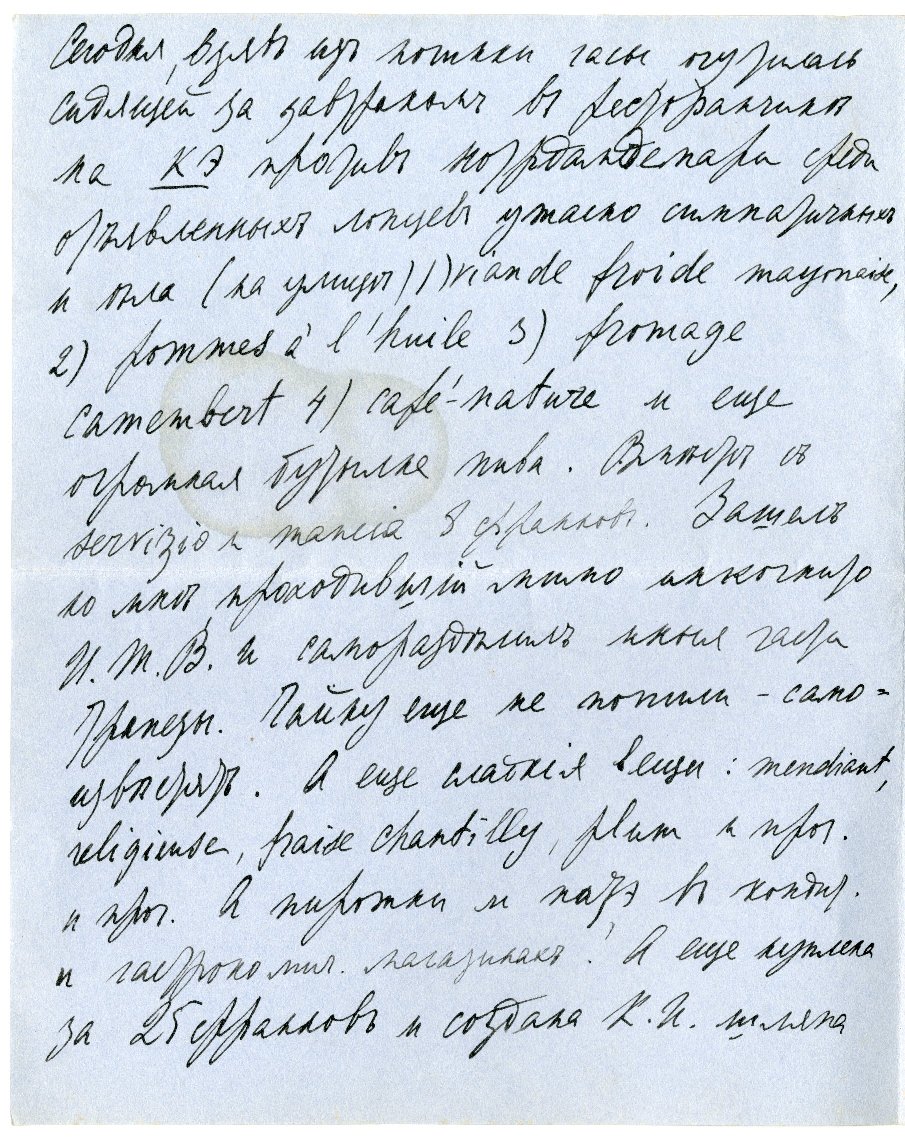 Сегодня, взявъ изъ починки часы очутилась
сидящей за завтракомъ въ ресторанчикѣ
на КЭ противъ Нотрдамдепари среди
отъявленныхъ купцевъ ужасно симпатичныхъ
и ѣла (на улицѣ) 1) viande froide mayonaise,
2) pommes à l'huile 3) fromage
camembert 4) café-nature и еще
огромная бутылка пива.  съ
servizio и mancia 8 франковъ. Зашелъ
ко мнѣ проходившій мимо инкогнито
И. Т. В. и самораздѣлилъ  часы
трапезы. Чайку еще не попили - само=
. А еще сладкія вещи: mendiant,
religieuse, fraise chantilly, plum и проч.
и проч. А пирожки и патэ въ кондит.
и гастрономич. магазинахъ! А еще куплена
за 25 франковъ и создана К. И. шляпа